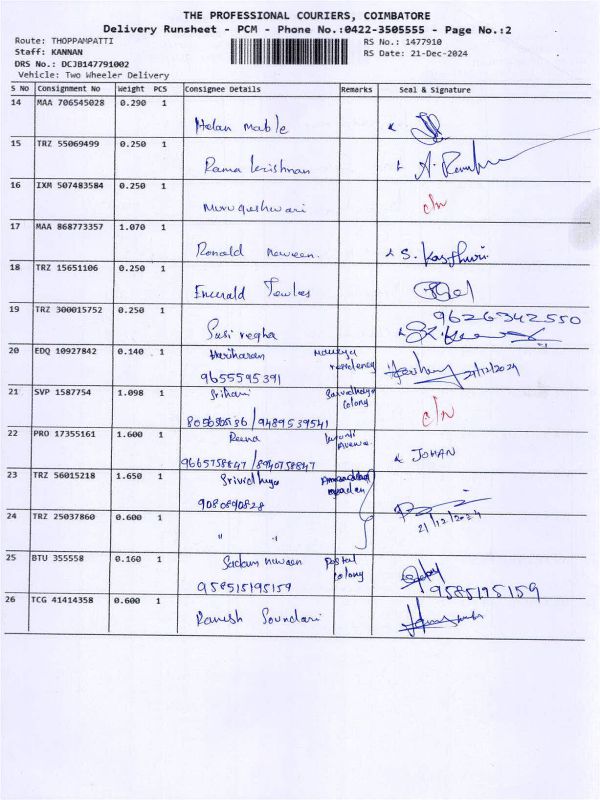 THE PROFESSIONAL COURIERS, COIMBATORE
Delivery Runsheet - PCM - Phone No.:0422-3505555 - Page No.:2
Route: THOPPAMPATTI RS No.: 1477910
Staff: KANNAN RS Date: 21-Dec-2024
DRS No.: DCJB147791002
Vehicle: Two Wheeler Delivery
S No Consignment No Weight PCS Consignee Details Remarks Seal & Signature
14 MAA 706545028 0.290 1
Helan mable
15 TRZ 55069499 0.250 1
Rama krishnan
16 IXM 507483584 0.250 1
Murugeshwari c/n
17 MAA 868773357 1.070 1
Ronald Naveen. S. Kasthuri
18 TRZ 15651106 0.250 1
Emerald Jewles
19 TRZ 300015752 0.250 1 9626342550
Sasi regha
20 EDQ 10927842 0.140 1 Hariharan residency
9655595391 21/12/2024
21 SVP 1587754 1.098 1 Srihari colony c/n
/9489539541
22 PRO 17355161 1.600 1 Reena Avenue.
9665758847 /8940758847 JOHAN
23 TRZ 56015218 1.650 1 Srividhya
9080890828
24 TRZ 25037860 0.600 1 21/12/2024
" "
25 BTU 355558 0.160 1 Sadam naveen postal colony
958515195159 9585195159
26 TCG 41414358 0.600 1
Ramesh Soundari